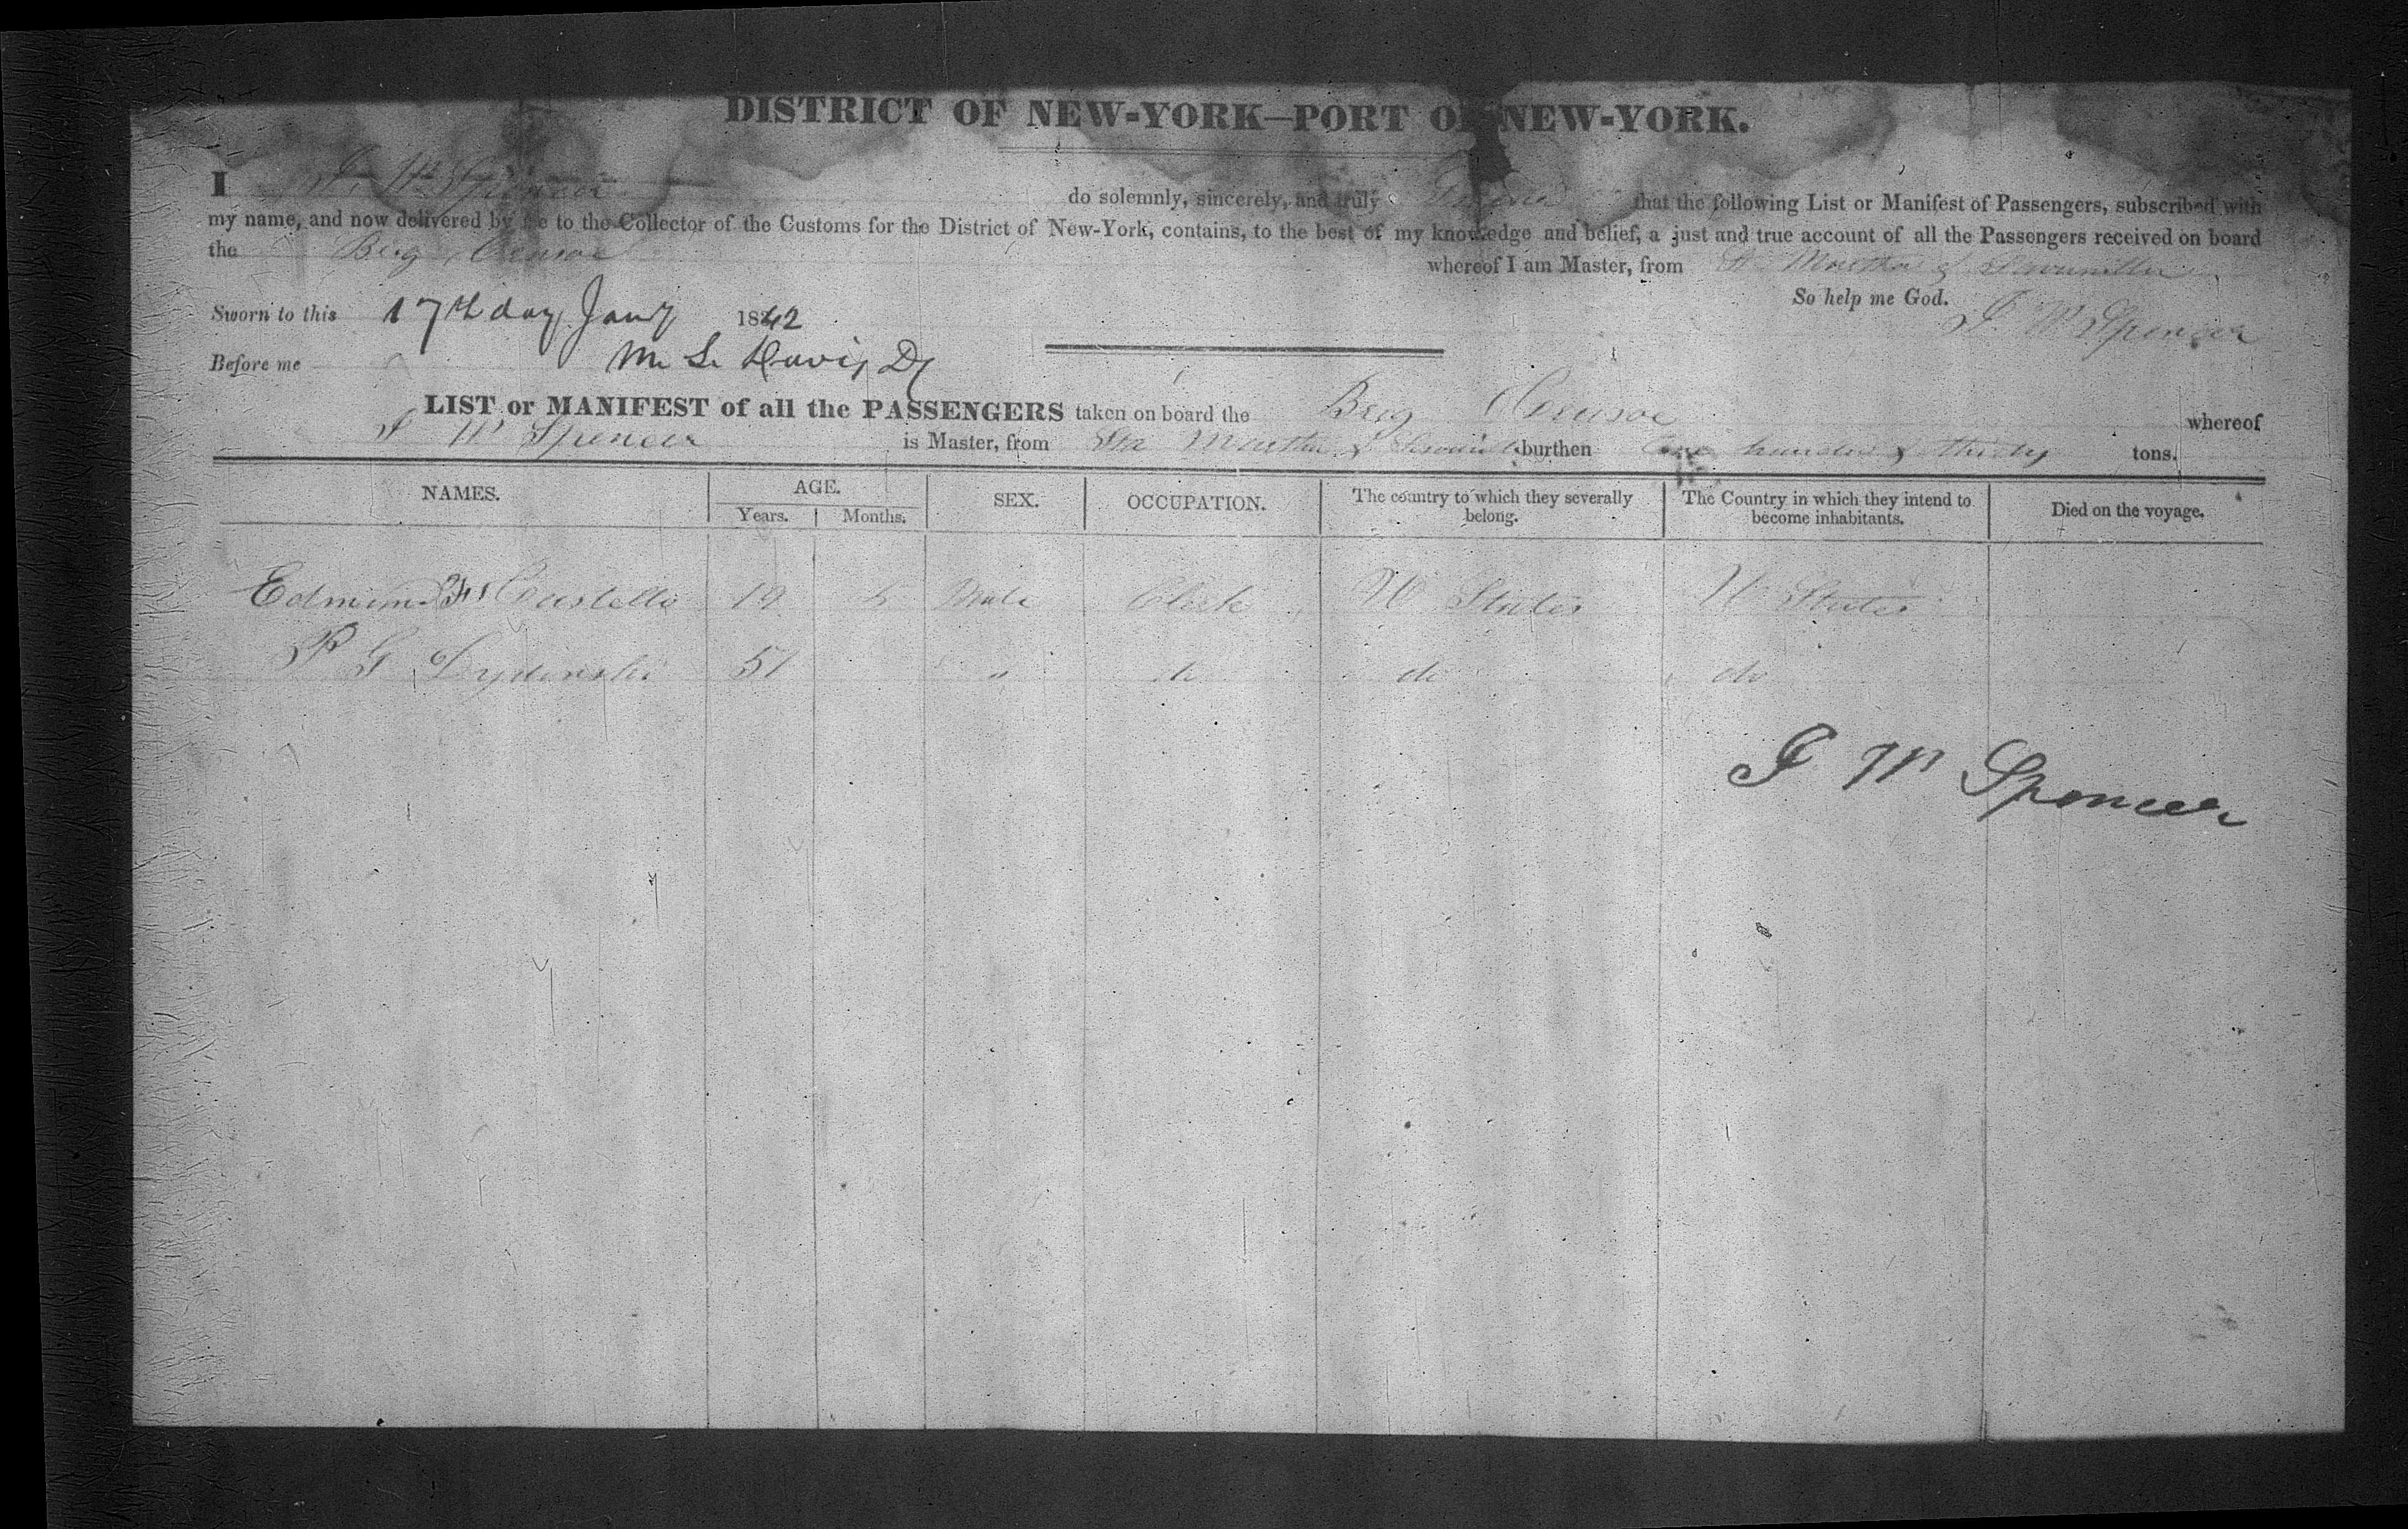 DISTRICT OF NEW-YORK—PORT OF NEW-YORK.
I J. W. Spencer do solemnly, sincerely, and truly that the following List or Manifest of Passengers, subscribed with
my name, and now delivered by me to the Collector of the Customs for the District of New-York, contains, to the best of my knowledge and belief, a just and true account of all the Passengers received on board
the Brig whereof I am Master, from St Martha & Savanilla
So help me God.
Sworn to this 17th day Jany 1842
J W Spencer
Before me
LIST or MANIFEST of all the PASSENGERS taken on board the Brig whereof
J W Spencer is Master, from Sta Martha & burthen One hundred & thirty tons.
NAMES. AGE. SEX. OCCUPATION. The country to which they severally belong. The Country in which they intend to become inhabitants. Died on the voyage.
Years. Months.
Edmund Castello 19 Male Clerk U States U States
P G 51 " do do do
J W Spencer